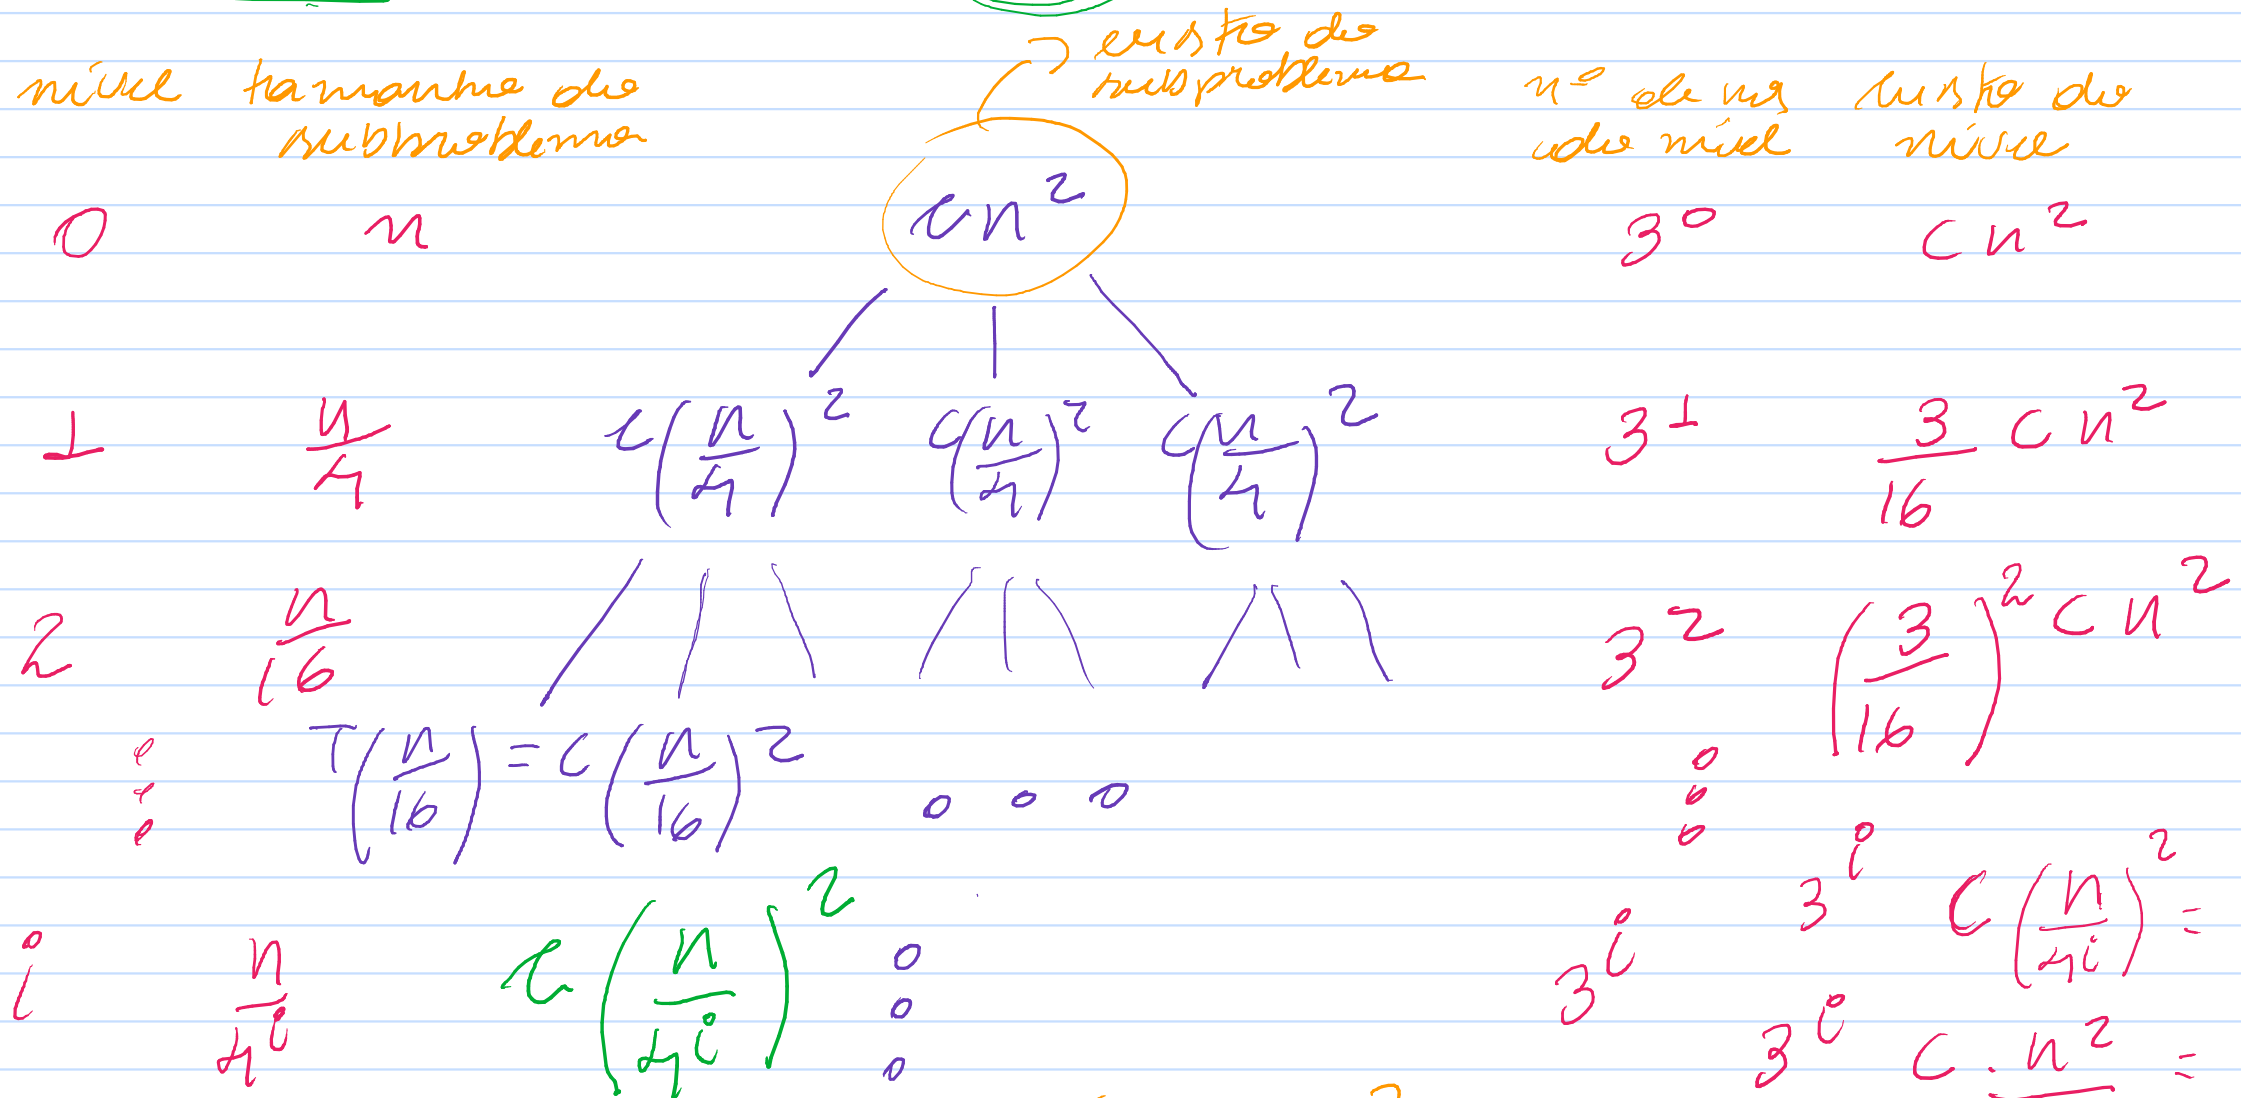 custo do
subproblema
nível tamanho do nº de nós custo do
subproblema do nível nível
0 n cn² 3⁰ cn²
1 n/4 c(n/4)² c(n/4)² c(n/4)² 3¹ 3/16 cn²
2 n/16 3² (3/16)² cn²
T(n/16) = c(n/16)²
i n/4ⁱ c(n/4ⁱ)² 3ⁱ 3ⁱ c(n/4ⁱ)² =
3ⁱ c · n² =